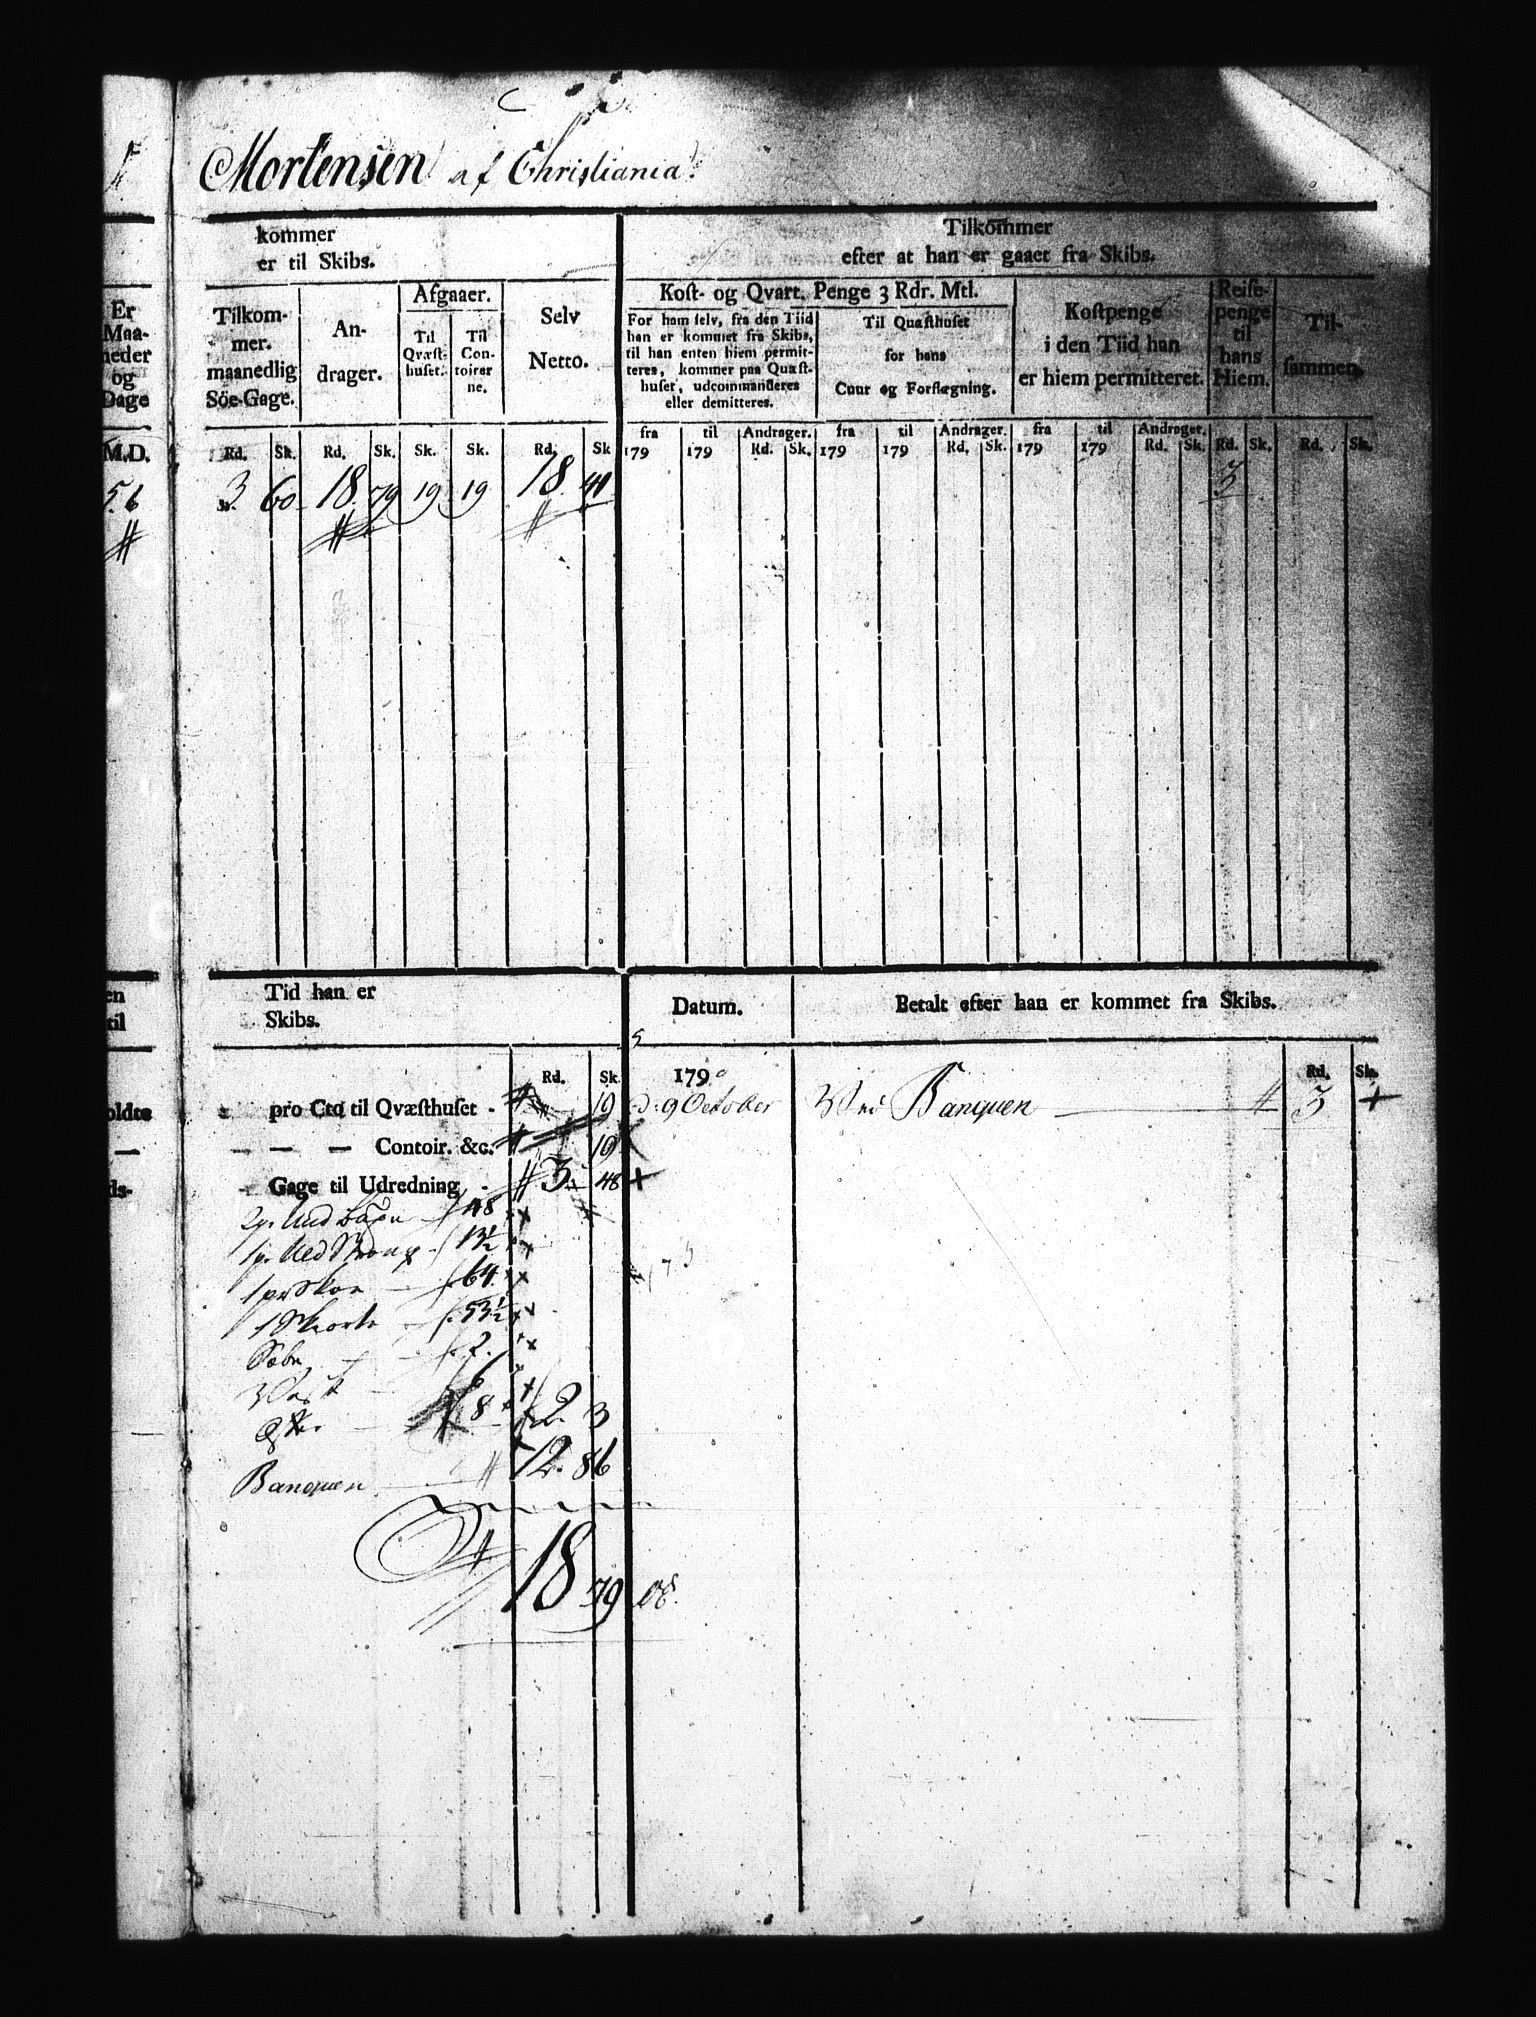 Mortensen af Christiania
kommer
er til Skibs.
Tilkommer
efter at han er gaaet fra Skibs.
Er
Maa-
neder
og
Dage
Tilkom-
mer.
maanedlig
Söe-Gage.
An-
drager.
Afgaaer.
Til
Qvæst-
huset.
Til
Con-
toirer
ne.
Selv
Netto.
Kost- og Qvart. Penge 3 Rdr. Mtl.
For ham selv, fra den Tiid
han er kommet fra Skibs,
til han enten hiem permit-
teres, kommer paa Quæst-
huset, udcommanderes
eller demitteres.
Til Quæsthuset
for hans
Cuur og Forflægning.
Kostpenge
i den Tiid han
er hiem permitteret.
Reise-
penge
til
hans
Hiem.
Til-
sammen.
fra til Andrager. fra til Andrager. fra til Andrager.
M.D. Rd. Sk. Rd. Sk. Sk. Sk. Rd. Sk 179 179 Rd. Sk. 179 179 Rd. Sk. 179 179 Rd. Sk. Rd. Sk. Rd. Sk.
5. 6 3. 60 18. 79 19 19 18. 41 3
en
til
Tid han er
Skibs.
Datum.
Betalt efter han er kommet fra Skibs.
Rd. Sk 179 Rd. Sk.
oldte pro Cto til Qvæsthuset - 19 d: 9 October Banquen 3
— — — Contoir. &c. 19
ds- Gage til Udredning - 3. 48
48
1 p. 13½
1 par Skoe 64
1 Skiorte 53½
Sæbe 2.
6
8 2. 3
Banquen 12. 86
18 79